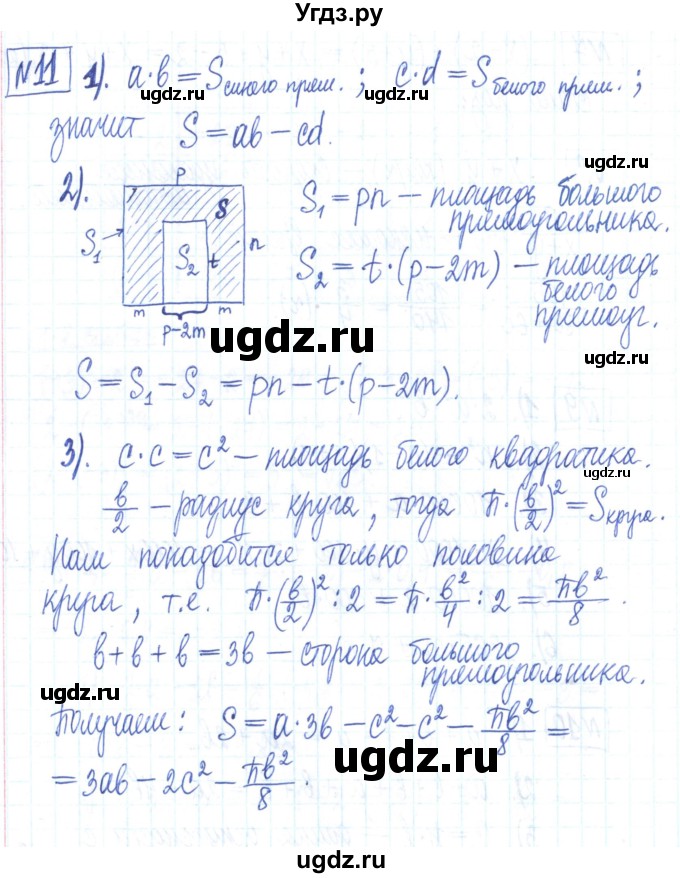 Угдз.ру
№11 1). a·b = S синего прям. ; c·d = S белого прям. ;
ugdz.ru ugdz.ru
значит S = ab – cd.
ugdz.ru
2). p S S₁ S₂ t n m m p–2m
S₁ = pn – площадь большого
прямоугольника.
S₂ = t·(p–2m) – площадь
белого
прямоуг.
ugdz.ru
ugdz.ru
S = S₁ – S₂ = pn – t·(p–2m).
ugdz.ru
3). c·c = c² – площадь белого квадратика.
ugdz.ru
b/2 – радиус круга, тогда π·(b/2)² = S круга.
ugdz.ru
Нам понадобится только половина
круга, т.е. π·(b/2)² : 2 = π·b²/4 : 2 = πb²/8.
ugdz.ru
b + b + b = 3b – сторона большого
прямоугольника.
ugdz.ru
ugdz.ru
Получаем: S = a·3b – c² – c² – πb²/8 =
ugdz.ru
= 3ab – 2c² – πb²/8.
ugdz.ru
ugdz.ru